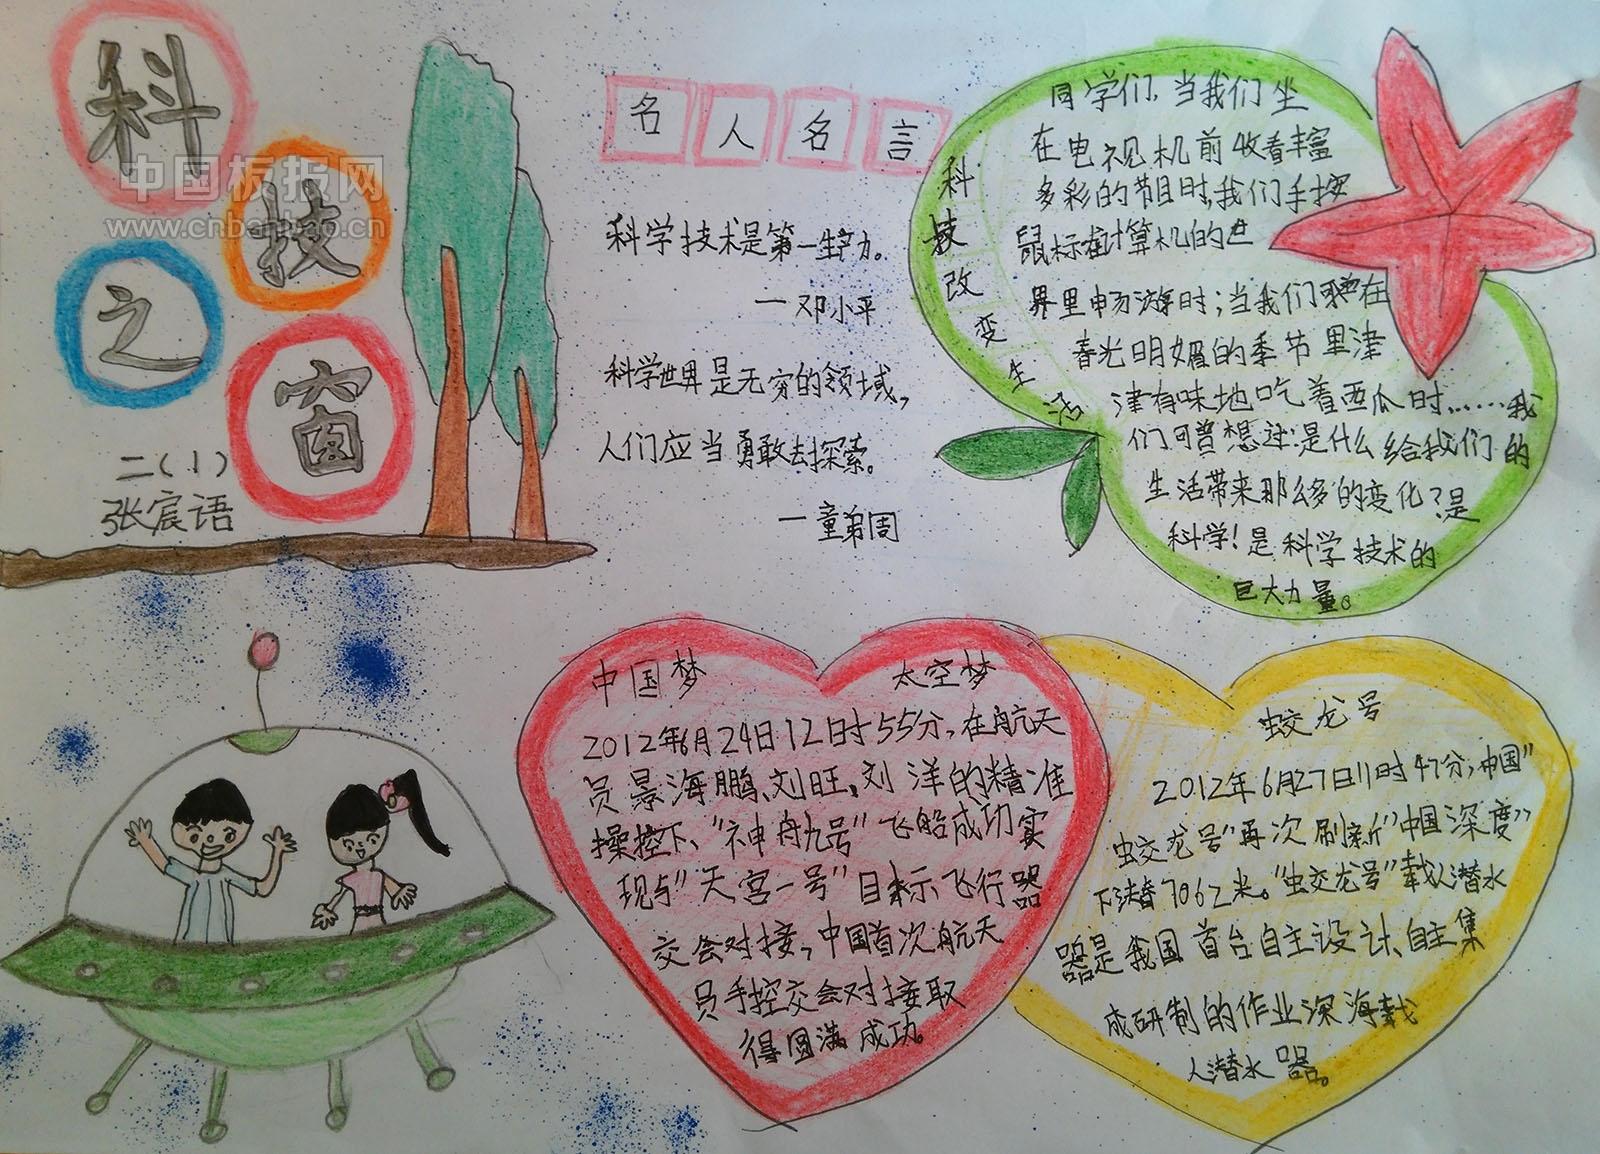 科
技
之
窗
二(1)
张宸语
中国板报网
www.cnbanbao.cn
名人名言
科学技术是第一生产力。
一邓小平
科学世界是无穷的领域,
人们应当勇敢去探索。
一童第周
科技改变生活
同学们,当我们坐
在电视机前收看丰富
多彩的节目时,我们手按
鼠标在计算机的世
界里畅游时;当我们在
春光明媚的季节里津
津有味地吃着西瓜时……我
们可曾想过:是什么给我们的
生活带来那么多的变化?是
科学!是科学技术的
巨大力量。
中国梦 太空梦
2012年6月24日12时55分,在航天
员景海鹏、刘旺,刘洋的精准
操控下、“神舟九号”飞船成功实
现与“天宫一号”目标飞行器
交会对接,中国首次航天
员手控交会对接取
得圆满成功。
蛟龙号
2012年6月27日11时47分,中国“
蛟龙号”再次刷新“中国深度”
下潜7062米。“蛟龙号”载人潜水
器是我国首台自主设计、自主集
成研制的作业深海载
人潜水器。